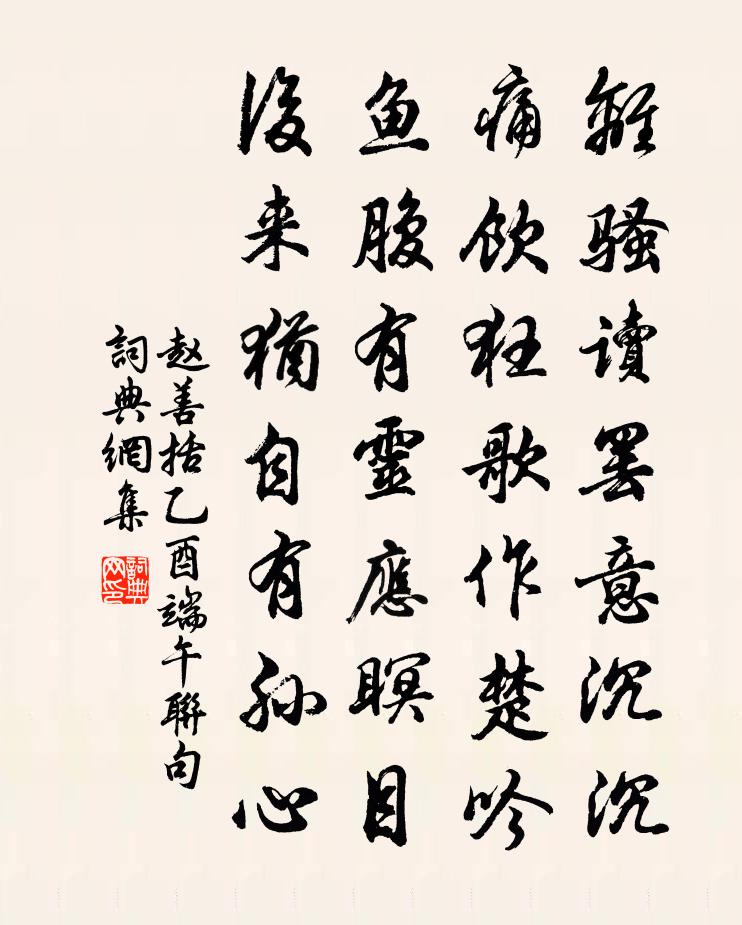 離骚讀罷意沉沉
痛飲狂歌作楚吟
鱼腹有靈應瞑目
後来猶自有孫心
赵善括乙酉端午聯句
詞典網集
詞典网印